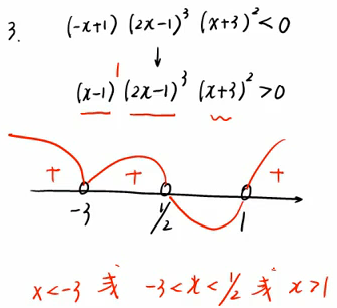 3. (-x+1) (2x-1)³ (x+3)² < 0
↓
(x-1)¹ (2x-1)³ (x+3)² > 0
+ + +
-3 1/2 1
x<-3 或 -3<x<1/2 或 x>1